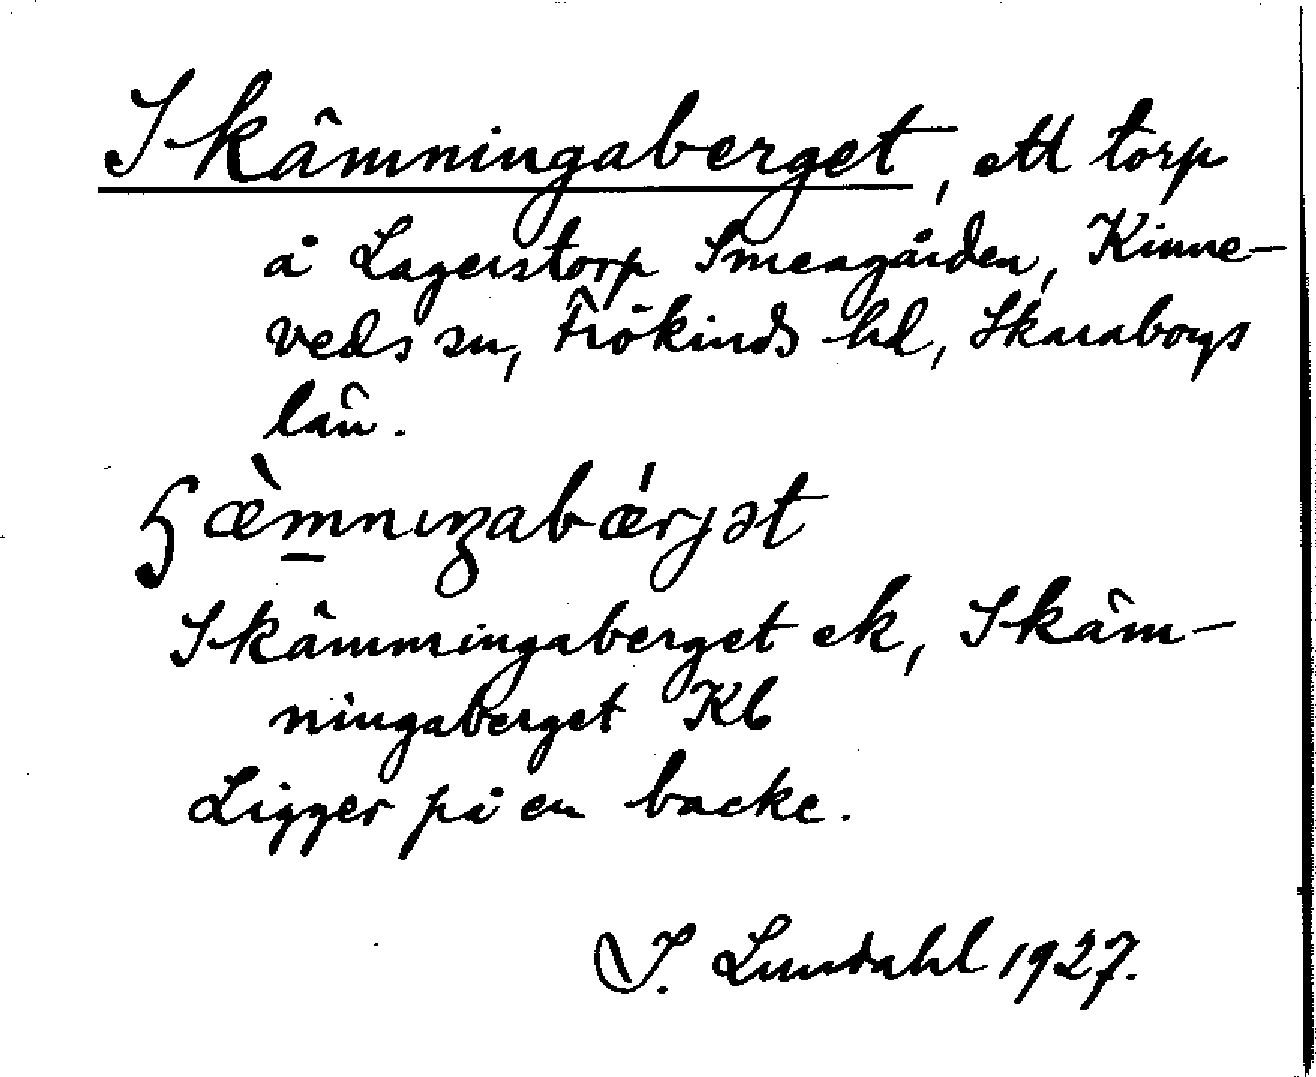 Skämningaberget, ett torp
å Lagerstorp Smeagården, Kinne-
veds sn, Frökinds hd, Skaraborgs
län.
ɧæ̀m̲nıŋabǽrjət
Skämmingaberget ek, Skäm-
ningaberget Kb
Ligger på en backe.
I. Lundahl 1927.